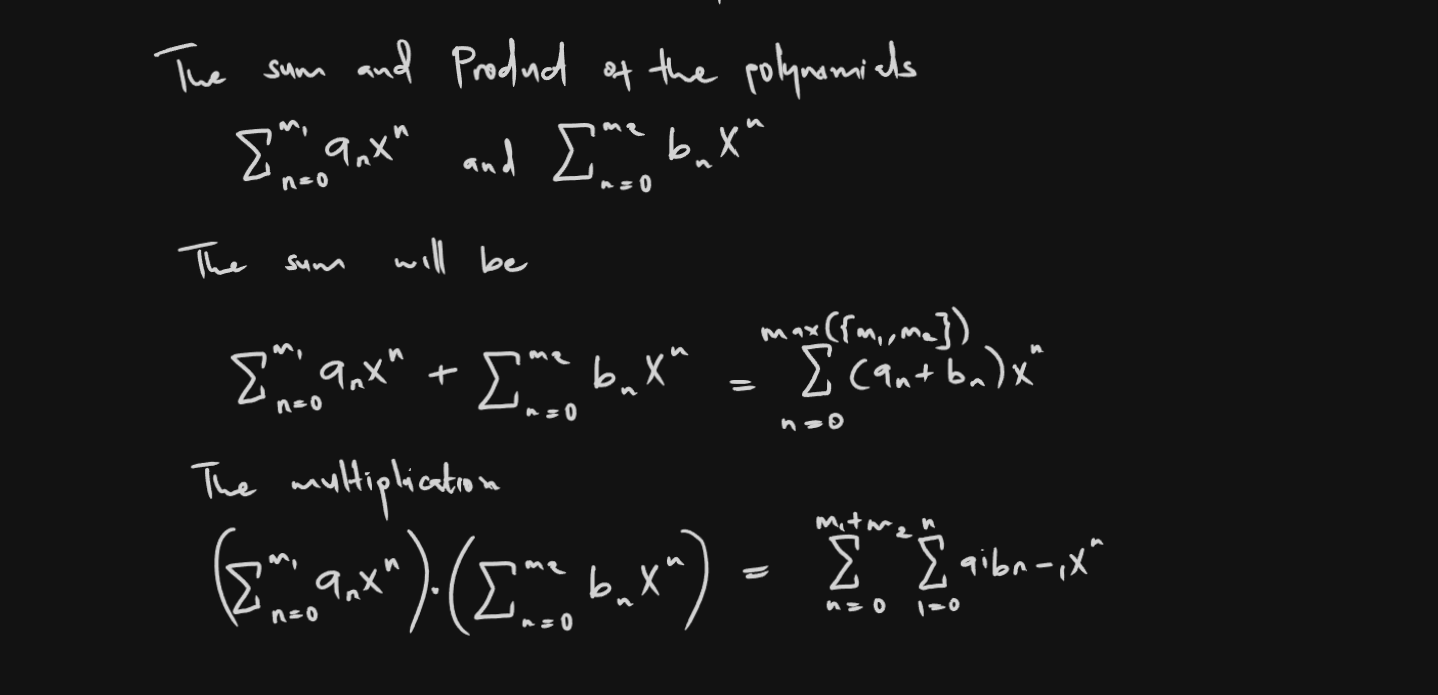 The sum and Product of the polynomials
∑_{n=0}^{m₁} aₙxⁿ and ∑_{n=0}^{m₂} bₙxⁿ
The sum will be
∑_{n=0}^{m₁} aₙxⁿ + ∑_{n=0}^{m₂} bₙxⁿ = ∑_{n=0}^{max({m₁,m₂})} (aₙ+bₙ)xⁿ
The multiplication
(∑_{n=0}^{m₁} aₙxⁿ)·(∑_{n=0}^{m₂} bₙxⁿ) = ∑_{n=0}^{m₁+m₂} ∑_{i=0}^{n} aᵢbₙ₋ᵢxⁿ